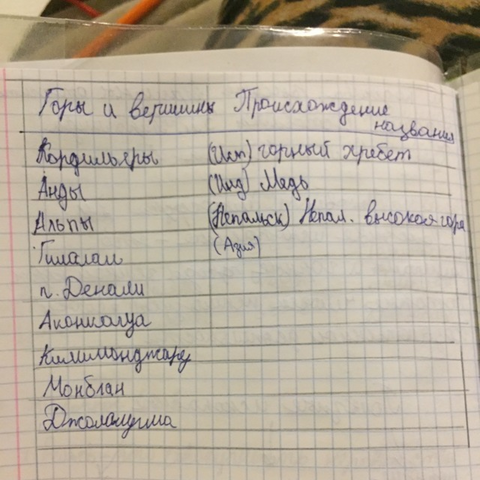 Горы и вершины Происхождение
названия
Кордильеры (Исп) горный хребет
Анды (Инд) Медь
Альпы (Непальск) Непал. высокая гора
Гималаи (Азия)
г. Денали
Аконкагуа
Килиманджаро
Монблан
Джомолунгма